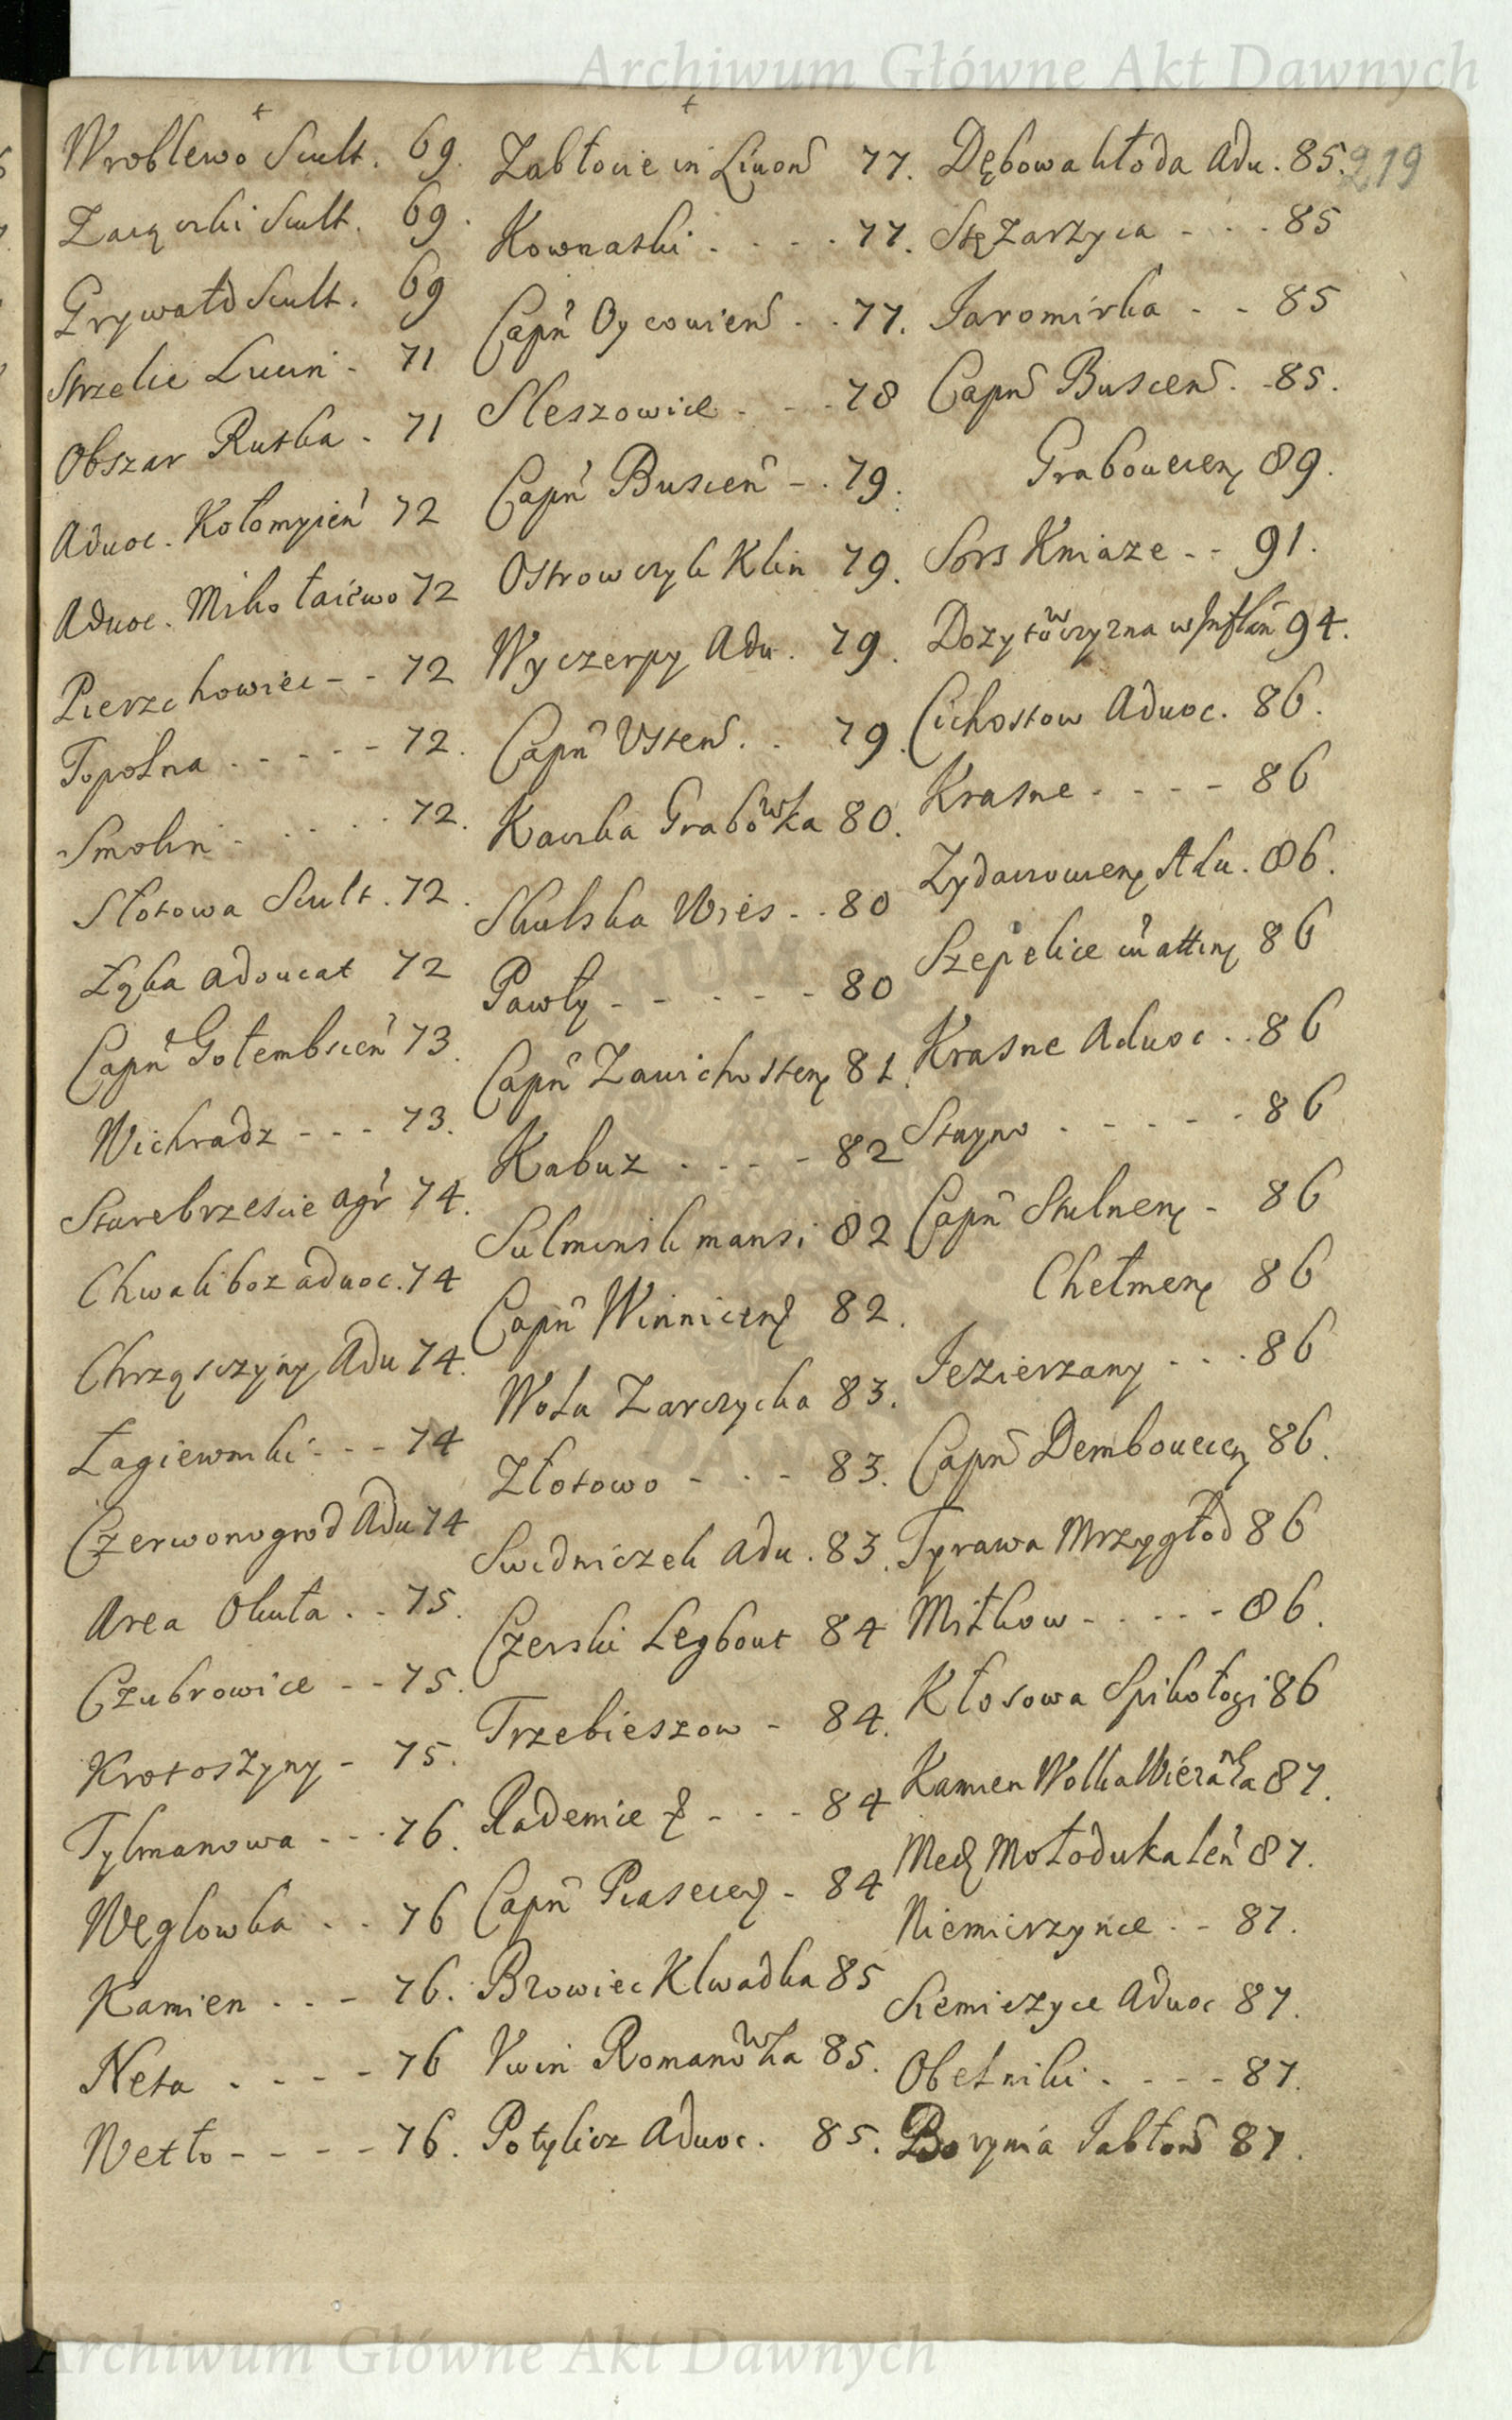 Archiwum Główne Akt Dawnych
219
Wroblewo Scult. 69.
Zaiączki Scult. 69.
Grywałd Scult. 69
Strzelce 71
Obszar Ruska . 71
Aduoc. Kołomyień 72
Aduoc. Mikołaiewo 72
Pierzchowiec - - 72
Topolna . - - - - 72.
Smolin - . . . . 72.
Słotowa Scult. 72.
Zęba aduocat 72
Capn Gołembscen 73.
Wichradz - - - 73.
Starebrzescie agr 74.
Chwaliboz aduoc. 74
Chrząsczyny Adu 74.
Łagiewniki - - - 74
Czerwonogrod Adu 74
Area Okuła . . 75.
Czubrowice - - 75.
Krotoszyny - 75.
Tylmanowa - - . 76.
Węglowka . . . 76
Kamien . . - 76.
Neta . - - - - 76
Netto - - - - - 76.
Zabłocie in Liuon 77.
Kownatki . . - - . 77.
Capn Oycouien . . 77.
Sleszowice - - - 78
Capn Buscen - . 79.
Ostrowczyk Klin 79.
Wyczerpy Adu. 79.
Capn Vsten . . 79.
Kaczka Grabowka 80.
Skulska Wies - . 80
Pawły - - - - - - 80
Capn Zauichosten 81.
Kabuz . . - - 82
Sulminsk mansi 82
Capn Winnicen 82.
Wola Zarczycka 83.
Złotowo - . - 83.
Swidniczek Adu . 83.
Czerski Legbout 84
Trzebieszow - 84.
Rademice - - - 84
Capn Piasecen - 84
Browiec Klwadka 85
Romanowka 85.
Potylicz Aduoc. 85.
Dębowa kłoda Adu. 85.
Stęzarzyca - . . . 85
Jaromirka . - 85
Capn Buscen . - 85.
Grabouecen 89.
Sors Kniaze - - 91.
Dozytowczyzna w Inflan 94.
Cichostow Aduoc. 86.
Krasne . . - - 86
Zydaczowien Adu. 86.
Szepelice cu attin 86
Krasne Aduoc . . 86
Stayno . - - - - 86
Capn Stulnen - 86
Chełmen 86
Jezierzany . . . . 86
Capn Dembouecen 86.
Tyrawa Mrzygłod 86
Mitkow - . - . - 86.
Kłosowa Spikołozi 86
Kamien Wolka 87.
Med Mołodukaleń 87.
Niemirzynce . - 87.
Siemiezyce Aduoc 87.
Obelniki . . - - - 87.
Borynia Jabłon 87.
Archiwum Główne Akt Dawnych